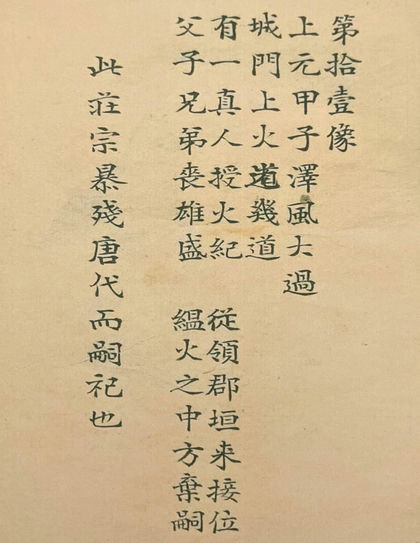 第拾壹像
上元甲子澤風大過
城門上火道幾道
有一真人授火紀 從領郡垣来接位
父子兄弟喪雄盛 緼火之中方棄嗣
此莊宗暴殘唐代而嗣祀也